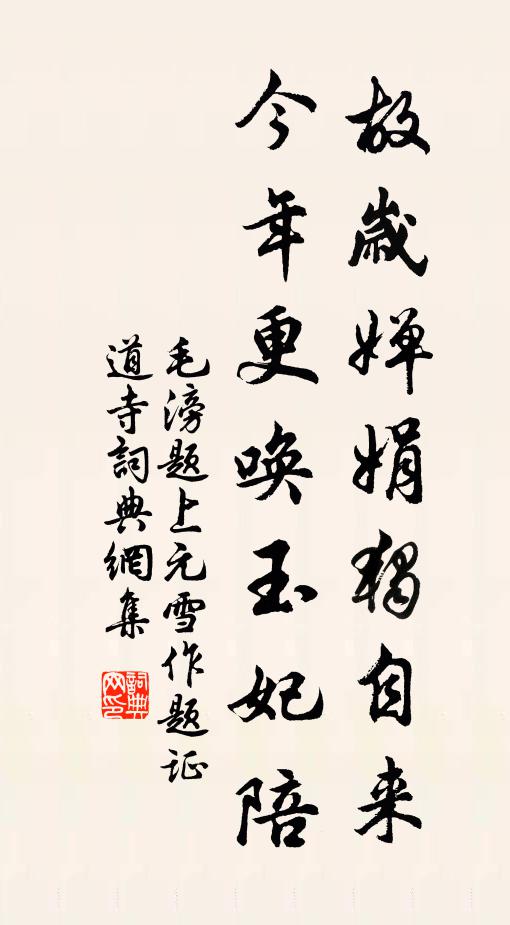 故歲嬋娟獨自来
今年更唤玉妃陪
毛滂题上元雪作题证
道寺詞典網集
詞典网印